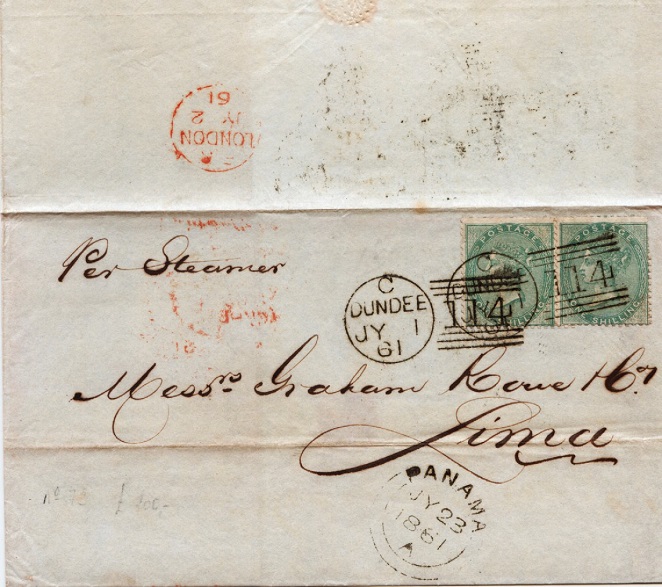 LONDON
JY 2
61
POSTAGE
POSTAGE
Per Steamer
C
DUNDEE
JY 1
61
C
DUNDEE
114
114
SHILLING
Messrs Graham Rowe & Co
Lima
PANAMA
JY 23
1861
A